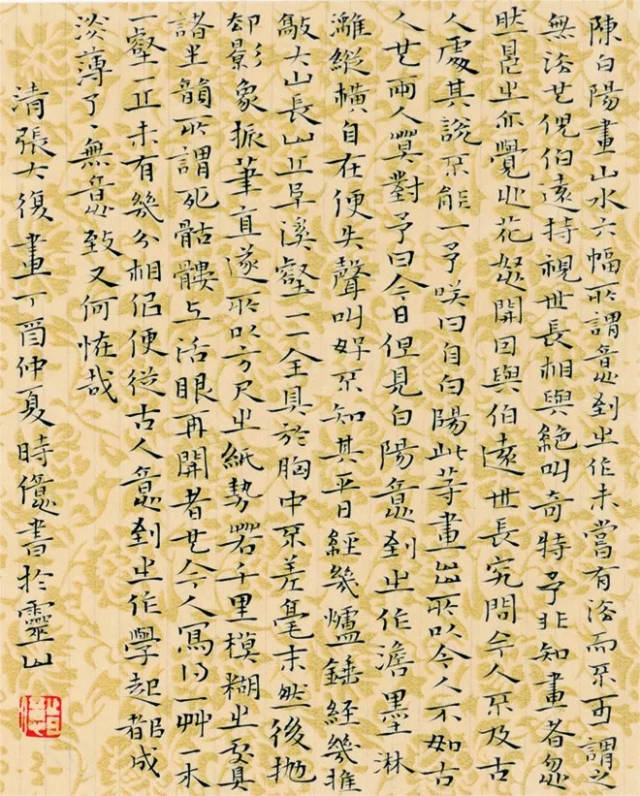 陳白陽畫山水六幅所謂意到之作未嘗有法而不可謂之
無法也倪伯遠持視世長相與絕叫奇特予非知畫者忽
然見之亦覺心花怒開因與伯遠世長究問今人不及古
人處其說不能一予咲曰自白陽此等畫出所以今人不如古
人也兩人莫對予曰今日但見白陽意到之作澹墨淋
漓縱橫自在便失聲叫好不知其平日經幾爐錘經幾推
敲大山長山丘阜溪壑一一全具於胸中不差毫末然後拋
却影象振筆直遂所以方尺之紙勢若千里模糊之具
諸生韻所謂死骷髏上活眼再開者也今人寫得一艸一木
一壑一丘未有幾分相佀便從古人意到之作學起都成
淡薄了々無意致又何怪哉
清張大復畫丁酉仲夏時億書於靈山